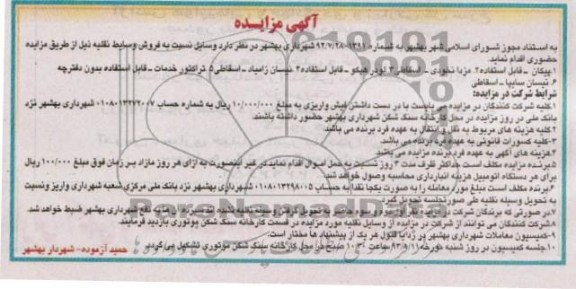 آگهی مزایده
به استناد مجوز شورای اسلامی شهر بهشهر به شماره ۱۳۹۱-۹۲/۷/۲۸ شهرداری بهشهر در نظر دارد وسایل نسبت به فروش وسایط نقلیه ذیل از طریق مزایده
حضوری اقدام نماید.
۱.پیکان - قابل استفاده۲. مزدا نخودی - اسقاطی۳.لودر هپکو - قابل استفاده۴.نیسان زامیاد - اسقاطی۵. تراکتور خدمات - قابل استفاده بدون دفترچه
۶.نیسان سایپا - اسقاطی
شرایط شرکت در مزایده:
۱.کلیه شرکت کنندگان در مزایده می بایست با در دست داشتن فیش واریزی به مبلغ ۱۰/۰۰۰/۰۰۰ ریال به شماره حساب شهرداری بهشهر نزد
بانک ملی در روز مزایده در محل کارخانه سنگ شکن شهرداری بهشهر حضور داشته باشند
۲.کلیه هزینه های مربوط به نقل و انتقال به عهده فرد برنده می باشد.
۳.کلیه کسورات قانونی به عهده فرد برنده می باشد.
۴.هزینه های آگهی به عهده فرد برنده مزایده می باشد
۵.برنده مزایده مکلف است حداکثر ظرف مدت ۳ روز نسبت به حمل اموال اقدام نماید در غیر اینصورت به ازای هر روز مازاد بر زمان فوق مبلغ ۱۰۰/۰۰۰ ریال
برای هر دستگاه اتومبیل هزینه انبارداری محاسبه وصول خواهد شد.
۶.برنده مکلف است مبلغ مورد معامله را به صورت یکجا نقدا به حساب شهرداری بهشهر نزد بانک ملی مرکزی شعبه شهرداری واریز ونسبت
به تحویل وسیله نقلیه طی صورتجلسه تحویل گیرد.
۷.در صورتی که برندگان شرکت در به تحویل گرفتن به نفع شهرداری بهشهر ضبط خواهد شد.
۸.شرکت کنندگان می توانند از شرکت در مزایده از وسایل نقلیه مورد مزایده در قسمت کارخانه سنگ شکن موتوری بازدید فرمایند.
۹-کمیسیون معاملات شهرداری بهشهر در رد یا قبول هر یک از پیشنهاد ها مختار است.
۱۰.جلسه کمیسیون در روز شنبه مورخه ۹۳/۸/۱۱ ساعت ۱۰:۳۰ صبح در محل کارخانه سنگ شکن موتوری تشکیل می گردد.
حمید آزموده- شهردار بهشهر